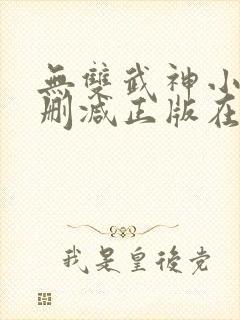 無雙武神小
刪減正版在
我是皇後党